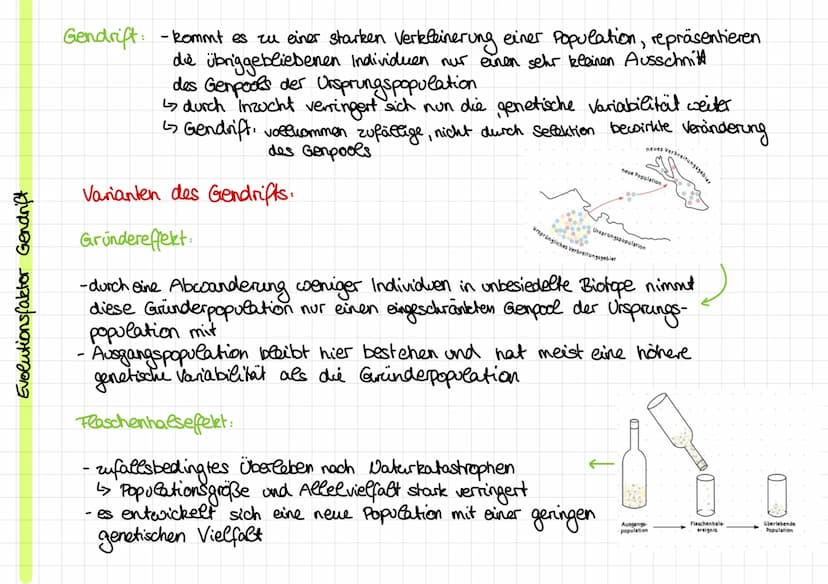 Gendrift: - kommt es zu einer starken Verkleinerung einer Population, repräsentieren
die übriggebliebenen Individuen nur einen sehr kleinen Ausschnitt
des Genpools der Ursprungspopulation
↳ durch Inzucht verringert sich nun die genetische Variabilität weiter
↳ Gendrift: vollkommen zufällige, nicht durch Selektion bewirkte Veränderung
des Genpools
neues Verbreitungsgebiet
neue Population
Ursprungspopulation
ursprüngliches Verbreitungsgebiet
Varianten des Gendrifts:
Gründereffekt:
- durch eine Abwanderung weniger Individuen in unbesiedelte Biotope nimmt
diese Gründerpopulation nur einen eingeschränkten Genpool der Ursprungs-
population mit
- Ausgangspopulation bleibt hier bestehen und hat meist eine höhere
genetische Variabilität als die Gründerpopulation
Flaschenhalseffekt:
- zufallsbedingtes Überleben nach Naturkatastrophen
↳ Populationsgröße und Allelvielfalt stark verringert
- es entwickelt sich eine neue Population mit einer geringen
genetischen Vielfalt
Ausgangs-
population
Flaschenhals-
ereignis
überlebende
Population
Evolutionsfaktor Gendrift